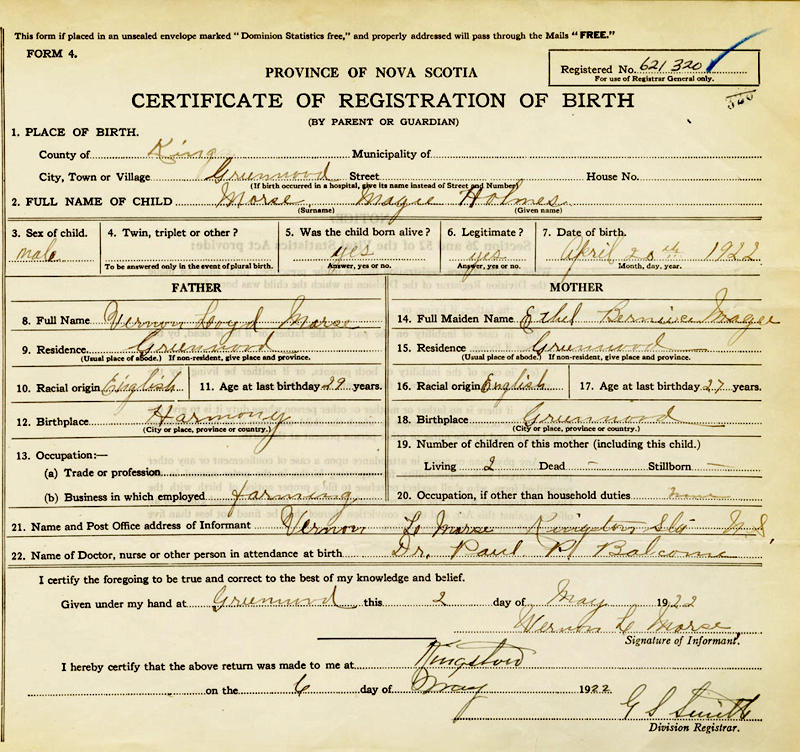 This form if placed in an unsealed envelope marked "Dominion Statistics free," and properly addressed will pass through the Mails "FREE."
FORM 4.
Registered No. 621 320
For use of Registrar General only.
320
PROVINCE OF NOVA SCOTIA
CERTIFICATE OF REGISTRATION OF BIRTH
(BY PARENT OR GUARDIAN)
1. PLACE OF BIRTH.
County of Kings Municipality of
City, Town or Village Greenwood Street House No.
(If birth occurred in a hospital, give its name instead of Street and Number)
2. FULL NAME OF CHILD Morse, Magee Holmes
(Surname) (Given name)
3. Sex of child. 4. Twin, triplet or other? 5. Was the child born alive? 6. Legitimate? 7. Date of birth.
male yes yes April 20th 1922
To be answered only in the event of plural birth. Answer, yes or no. Answer, yes or no. Month, day, year.
FATHER
8. Full Name Vernon Loyd Morse
9. Residence Greenwood
(Usual place of abode.) If non-resident, give place and province.
10. Racial origin English 11. Age at last birthday 29 years.
12. Birthplace Harmony
(City or place, province or country.)
13. Occupation:—
(a) Trade or profession
(b) Business in which employed farming
MOTHER
14. Full Maiden Name Ethel Bernice Magee
15. Residence Greenwood
(Usual place of abode.) If non-resident, give place and province.
16. Racial origin English 17. Age at last birthday 27 years.
18. Birthplace Greenwood
(City or place, province or country.)
19. Number of children of this mother (including this child.)
Living 2 Dead – Stillborn –
20. Occupation, if other than household duties none
21. Name and Post Office address of Informant Vernon L Morse Kingston Sta N.S.
22. Name of Doctor, nurse or other person in attendance at birth Dr. Paul Balcome
I certify the foregoing to be true and correct to the best of my knowledge and belief.
Given under my hand at Greenwood this 2 day of May 1922
Vernon L Morse
Signature of Informant.
I hereby certify that the above return was made to me at Kingston
on the 6 day of May 1922
G S Smith
Division Registrar.